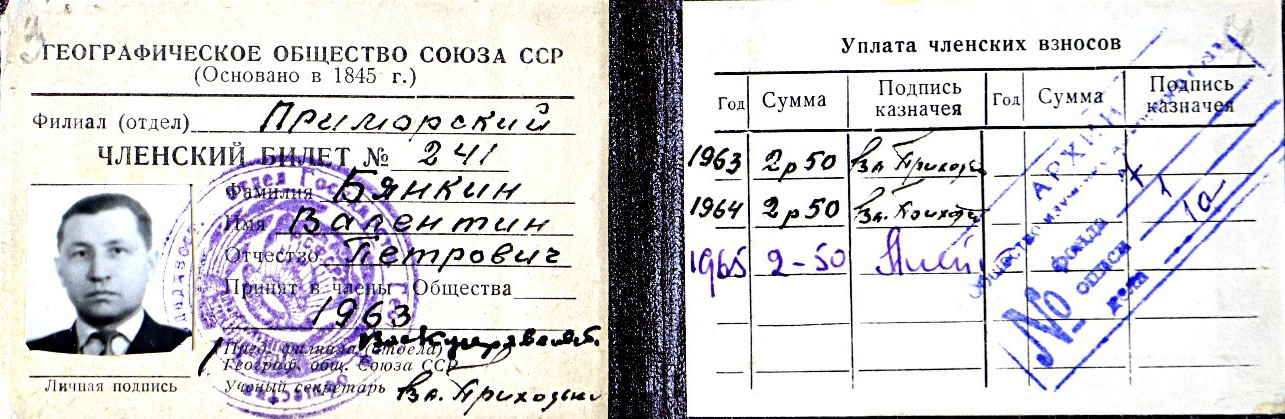 ГЕОГРАФИЧЕСКОЕ ОБЩЕСТВО СОЮЗА ССР
(Основано в 1845 г.)
Филиал (отдел) Приморский
ЧЛЕНСКИЙ БИЛЕТ № 241
Фамилия Бянкин
Имя Валентин
Отчество Петрович
Принят в члены Общества
1963
Пред. филиала (отдела)
Географ. общ. Союза ССР
Ученый секретарь Вл. Приходько
Личная подпись
Уплата членских взносов
Год Сумма Подпись казначея Год Сумма Подпись казначея
1963 2р50 Вл. Приходько
1964 2р50 Вл. Приходько
1965 2-50
АРХИВ
Общество изучения
№ фонда 1
описи 1
дела 1а